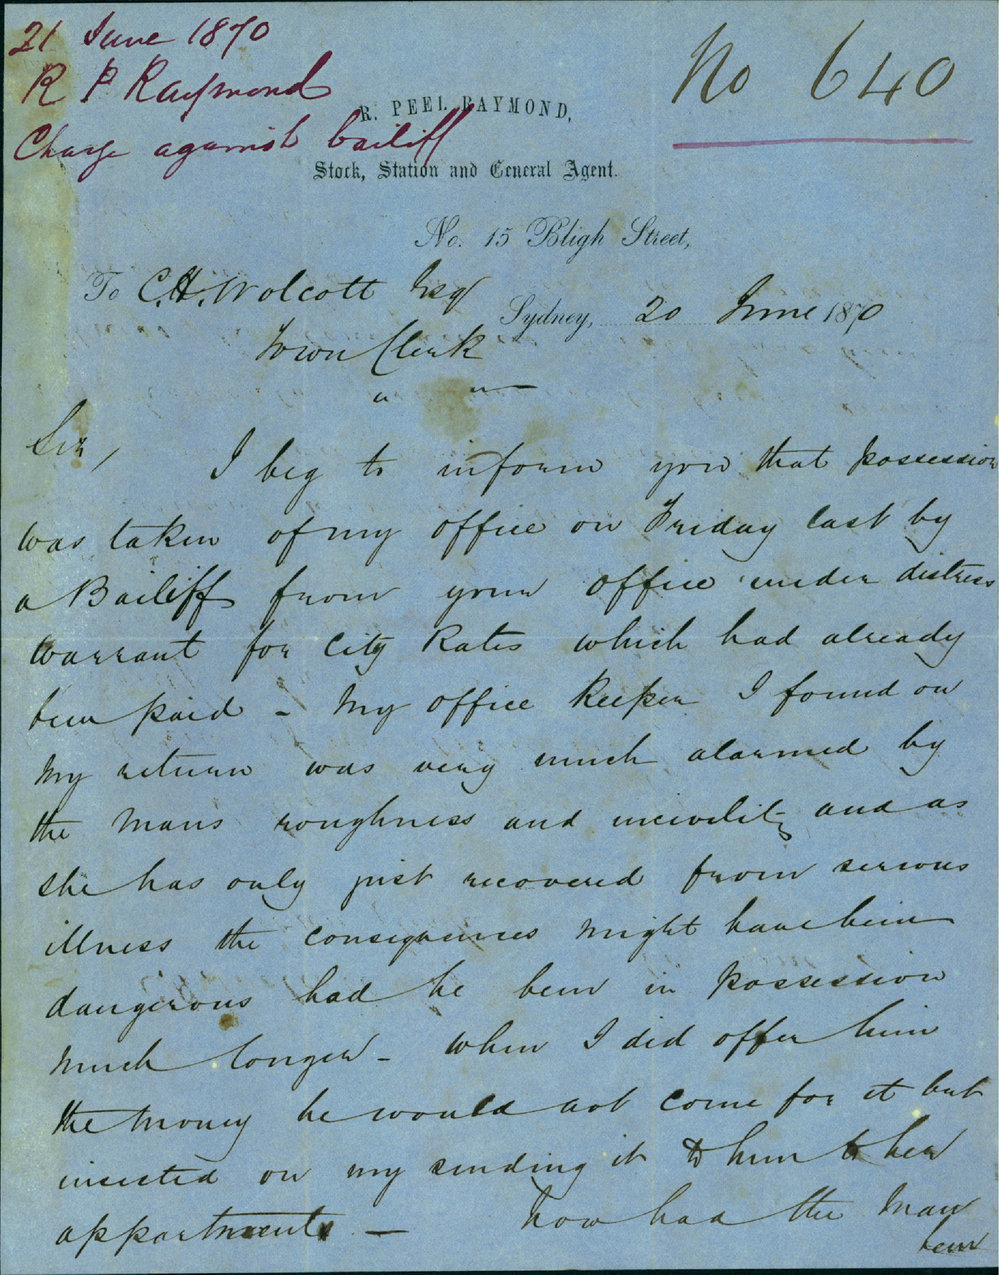 21 June 1870
R P Raymond
Charge against bailiff
No 640
R. PEEL RAYMOND,
Stock, Station and General Agent.
No. 15 Bligh Street,
To C.H. Wolcott Esq
Sydney, 20 June 1870
Town Clerk
" "
Sir,
I beg to inform you that possession
was taken of my office on Friday last by
a Bailiff from your office under distress
warrant for City Rates which had already
been paid - My office keeper I found on
my return was very much alarmed by
the mans roughness and incivility and as
she has only just recovered from serious
illness the consequences might have been
dangerous had he been in possession
much longer - When I did offer him
the money he would not come for it but
insisted on my sending it to him to her
appartments - Now had the man
been